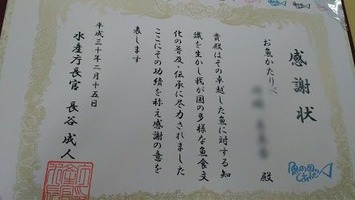 感謝状
お魚かたりべ
殿
貴殿はその卓越した魚に対する知
識を生かし我が国の多様な魚食文
化の普及・伝承に尽力されました
ここにその功績を称え感謝の意を
表します
平成三十年二月十五日
水産庁長官 長谷成人